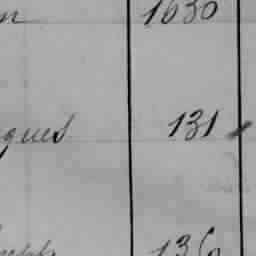 n 1630
ques 131
136